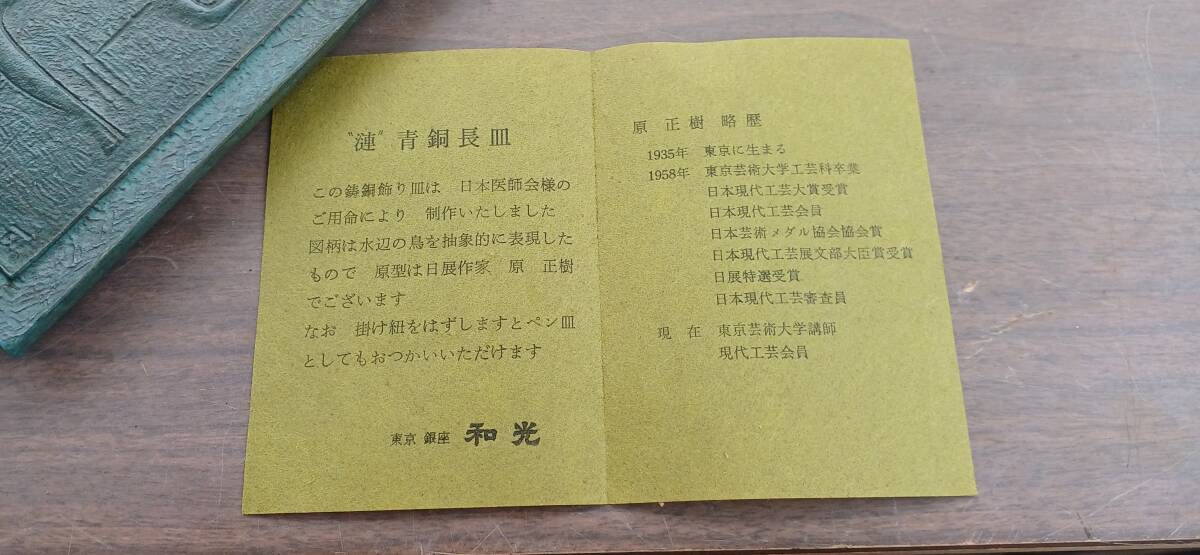 〝漣〟青銅長皿
この鋳銅飾り皿は 日本医師会様の
ご用命により 制作いたしました
図柄は水辺の鳥を抽象的に表現した
もので 原型は日展作家 原 正樹
でございます
なお 掛け紐をはずしますとペン皿
としてもおつかいいただけます
東京 銀座 和光
原 正樹 略歴
1935年 東京に生まる
1958年 東京芸術大学工芸科卒業
日本現代工芸大賞受賞
日本現代工芸会員
日本芸術メダル協会協会賞
日本現代工芸展文部大臣賞受賞
日展特選受賞
日本現代工芸審査員
現 在 東京芸術大学講師
現代工芸会員